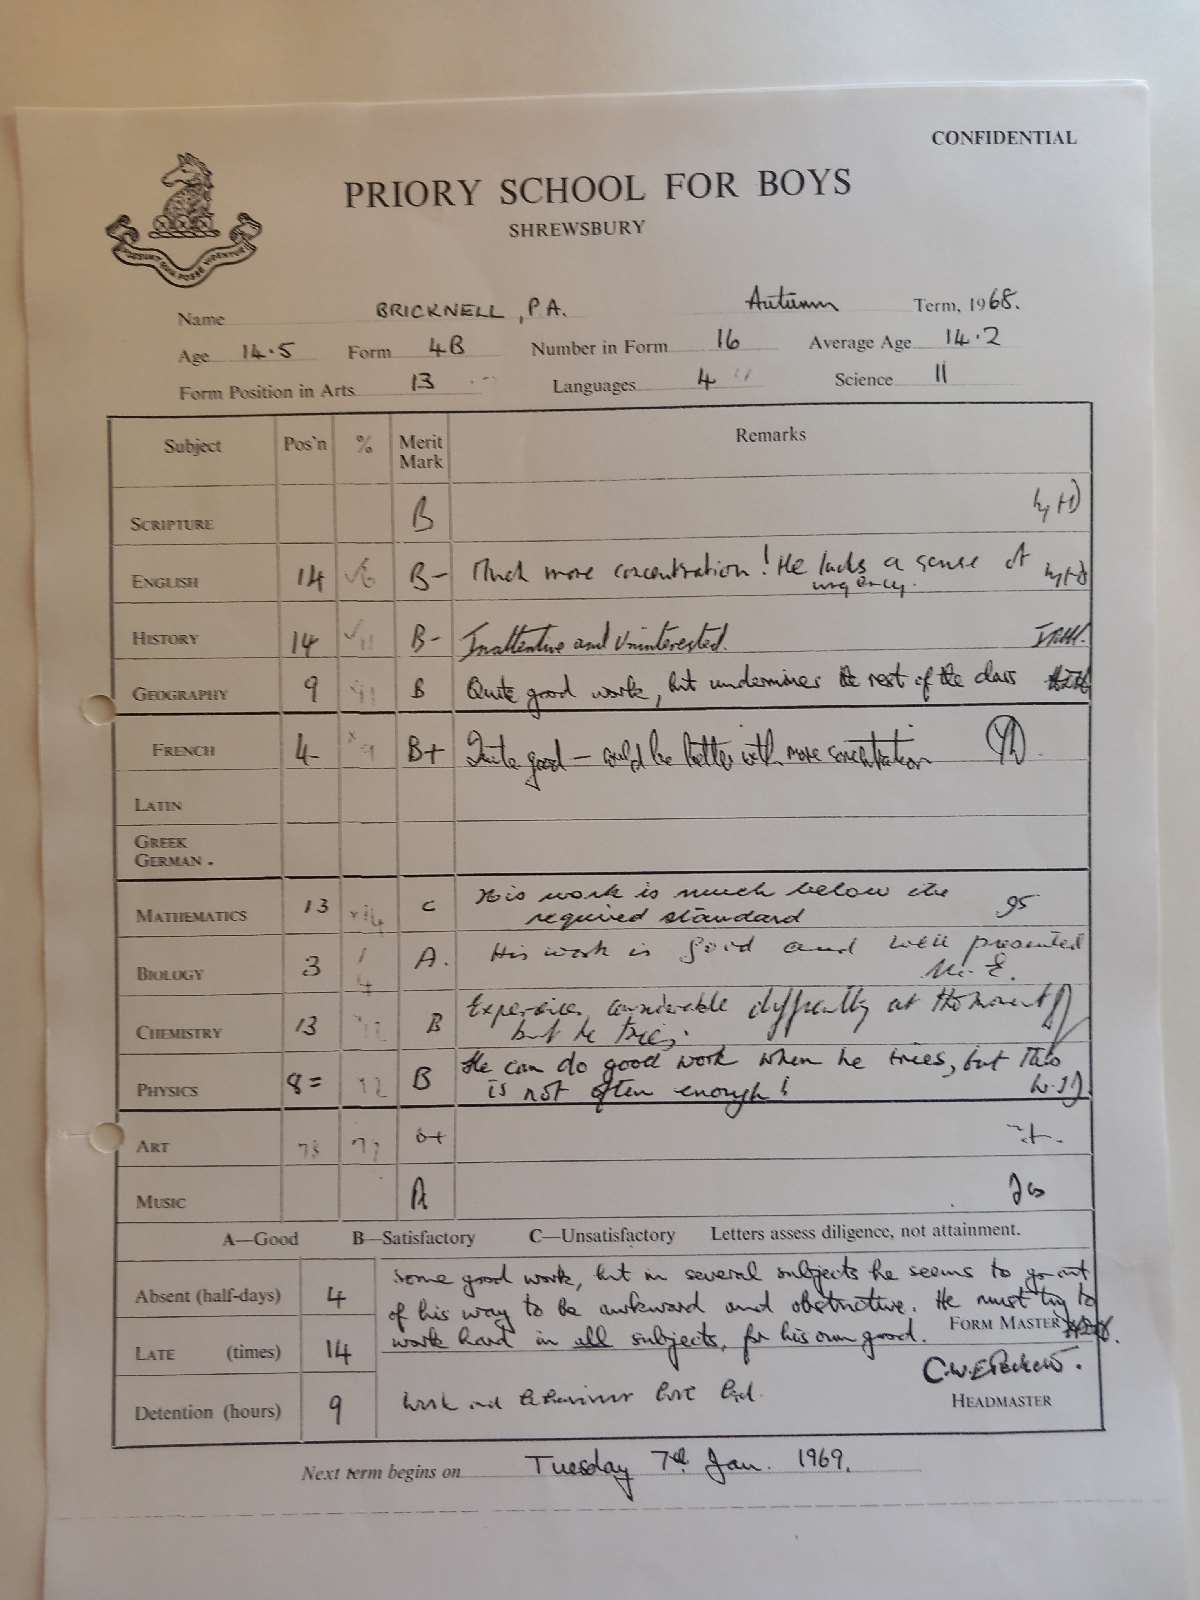 CONFIDENTIAL
PRIORY SCHOOL FOR BOYS
SHREWSBURY
POSSUNT QUIA POSSE VIDENTUR
Name BRICKNELL, P.A. Autumn Term, 1968.
Age 14.5 Form 4B Number in Form 16 Average Age 14.2
Form Position in Arts 13 Languages 4 Science 11
Subject Pos'n % Merit Mark Remarks
SCRIPTURE B
ENGLISH 14 B- Much more concentration! He lacks a sense of
urgency.
HISTORY 14 B- Inattentive and Uninterested.
GEOGRAPHY 9 B Quite good work, but undermines the rest of the class
FRENCH 4 B+ Quite good — could be better with more concentration
LATIN
GREEK
GERMAN.
MATHEMATICS 13 C His work is much below the
required standard
BIOLOGY 3 A. His work is good and well presented
CHEMISTRY 13 B considerable difficulty at the moment
but he tries.
PHYSICS 8= B He can do good work when he trees, but this
is not often enough!
ART B+
MUSIC A
A—Good B—Satisfactory C—Unsatisfactory Letters assess diligence, not attainment.
Absent (half-days) 4
LATE (times) 14
Detention (hours) 9
Some good work, but in several subjects he seems to go out
of his way to be awkward and obstructive. He must try to
work hard in all subjects, for his own good. FORM MASTER
Work and behaviour both bad.
HEADMASTER
Next term begins on Tuesday 7th Jan. 1969.